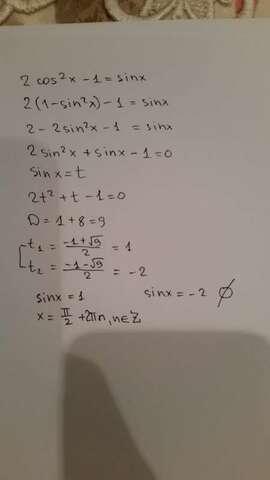 2 cos²x − 1 = sinx
2(1−sin²x) − 1 = sinx
2 − 2sin²x − 1 = sinx
2sin²x + sinx − 1 = 0
sinx = t
2t² + t − 1 = 0
D = 1 + 8 = 9
t₁ = (−1+√9)/2 = 1
t₂ = (−1−√9)/2 = −2
sinx = 1 sinx = −2 ∅
x = π/2 + 2πn, n∈Z